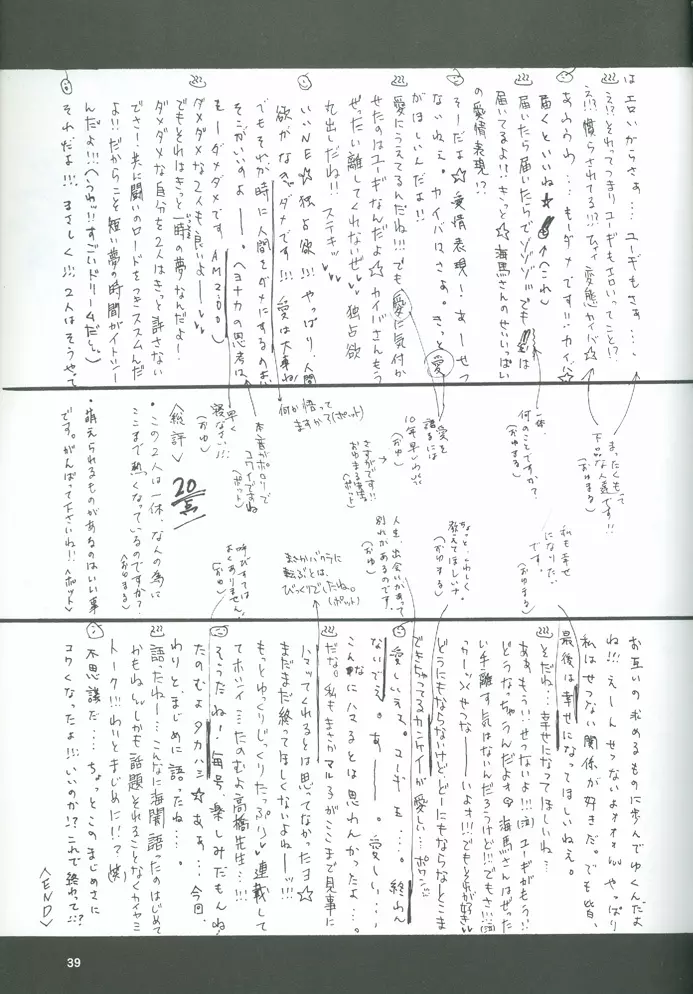 はエロいからさぁ…ユーギもさぁ…、
え!?それってつまりユーギもエロいってこと!?
届くといいね☆
届いてるよ!!きっと☆海馬さんのせいいっぱい
の愛情表現!?
そーだよ☆愛情表現!あーせつ
ないねぇ。カイバはさぁ。きっと愛
がほしいんだよ!!
愛にうえてるんだね!!!でも愛に気付か
せたのはユーギなんだよ☆カイバさんもう
ぜったい離してくれなぜ 独占欲
丸出しだね!!ステキ
いいNE☆独占欲!!!やっぱり、人間
欲がなきゃダメです!!!愛は大事ね!
でもそれが時に人間をダメにするのよ
そこがいいのよー。ヘヨナカの思考は、
もーダメダメです AM2:00)
ダメダメな2人も良いよー
でもそれはきっと一時の夢なんだよー!
ダメダメな自分を2人はきっと許さない
でさ!共に闘いのロードをつきススムんだ
よ!!だからこそ短い夢の時間がイトシー
んだよ!!!(うわっ!!すごいドリームだぁ)
それだよ!!!、まさしく!!!、2人はそうやって
まったくもって
下品な人達です!!
(おゆまる)
一体、
何のことですか?
(おゆまる)
愛を
語るには
10年早いわ!!
(おゆ)
さすがです!!
何か悟って
ますかて?(ポット)
本音がポロリで
コワイですね
(ポット)
早く
寝なさい!!!
(おゆ)
<総評>
20点
・この2人は一体、なんの為に
ここまで熱くなっているのですか?
<おゆまる>
・萌えられるものがあるのはいい事
です。がんばって下さいね!!<ポット>
私も幸せ
になりたい
です。
(おゆまる)
ちょっと、くわしく
教えてほしいナ
(おゆまる)
人生、出会いがあって
別れがあるのです。
(おゆ)
まさかバクラに
転ぶとは、
びっくりでしたね。
(ポット)
呼びすては
よくありません!
(おゆ)
お互いの求めるものに歩んでゆくんだよ
ね!!!えーんせつないよォォォ やっぱり
私はせつない関係が好きだ。でも皆、
最後は幸せになってほしいねぇ。
そだね…幸せになってほしいね…
ああもう!!せつないよ!!(泣)ユーギがもう!!
どうなっちゃうんだよォ 海馬さんはぜった
い手離す気はないんだろうけど!!でもさ!!(泣)
っかーッ せつなーいよォ!!!でもそれが好き
どうにもならないけどどーにもならなくとこま
できちゃってるカンケイが愛しい…ポワン
愛しいえぇ。ユーギも…。終わん
ないでぇ。あー。愛しい…、
こんなにハマるとは思わんかったよ…。
だな。私もまさかマル3がここまで見事に
ハマッてくれるとは思ってなかったヨ☆
まだまだ終ってほしくないよねーッ!!!
もっとゆっくりじっくりたっぷり 連載して
てホシイ…たのむよ高橋先生…!!!
そうだね!毎号、楽しみだもんね!
たのむよタカハシ☆あぁ…今回、
わりとまじめに語ったね…。
語ったねー…こんなに海闇語ったのはじめて
かもね しかも話題それることなくカイヤミ
トーク!!!わいとまじめに!!?(笑)
不思議だ…。ちょっとこのまじめさに
コワくなったよ!!!いいのか!?これで終わって…!?
<END>
39